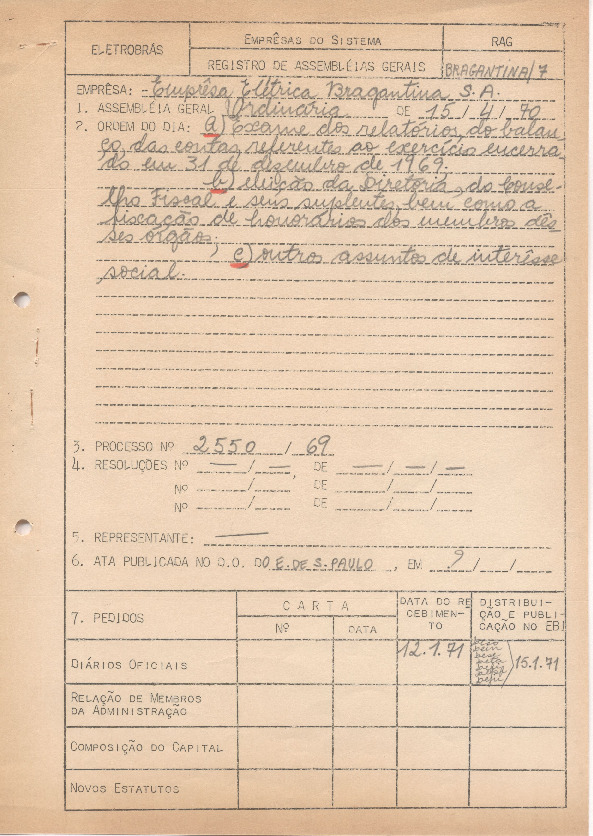 ELETROBRÁS
EMPRÊSAS DO SISTEMA
RAG
REGISTRO DE ASSEMBLÉIAS GERAIS
BRAGANTINA/7
EMPRÊSA: Emprêsa Elétrica Bragantina S.A.
1. ASSEMBLÉIA GERAL Ordinária DE 15/4/70
2. ORDEM DO DIA: a) Exame dos relatórios, do balan-
ço, das contas, referentes ao exercício encerra-
do em 31 de dezembro de 1969;
b) eleição da Diretoria, do Conse-
lho Fiscal e seus suplentes, bem como a
fixação de honorários dos membros dês-
ses órgãos;
c) outros assuntos de interêsse
social.
3. PROCESSO Nº 2550 / 69
4. RESOLUÇÕES Nº — / —, DE — / — / —
Nº / DE / /
Nº / DE / /
5. REPRESENTANTE: —
6. ATA PUBLICADA NO D.O. DO E. DE S. PAULO, EM ? / /
7. PEDIDOS
CARTA
Nº
DATA
DATA DO RE
CEBIMEN-
TO
DISTRIBUI-
ÇÃO E PUBLI-
CAÇÃO NO EBI
DIÁRIOS OFICIAIS
12.1.71
15.1.71
RELAÇÃO DE MEMBROS
DA ADMINISTRAÇÃO
COMPOSIÇÃO DO CAPITAL
NOVOS ESTATUTOS